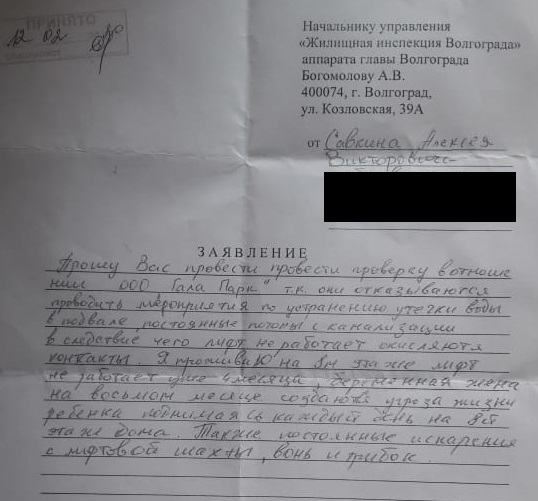 ПРИНЯТО
12 02
Начальнику управления
«Жилищная инспекция Волгограда»
аппарата главы Волгограда
Богомолову А.В.
400074, г. Волгоград,
ул. Козловская, 39А
от Савкина Алексея
Викторовича
ЗАЯВЛЕНИЕ
Прошу Вас провести провести проверку в отноше
нии ООО Гала Парк" т.к. они отказываются
проводить мероприятия по устранению утечки воды
в подвале, постоянные потопы с канализации
в следствие чего лифт не работает окисляются
контакты. Я проживаю на 8м этаже лифт
не работает уже 4 месяца, беременная жена
на восьмом месяце создаются угроза жизни
ребенка поднимаясь каждый день на 8й
этаж дома. Также постоянные испарения
с лифтовой шахты, вонь и грибок.